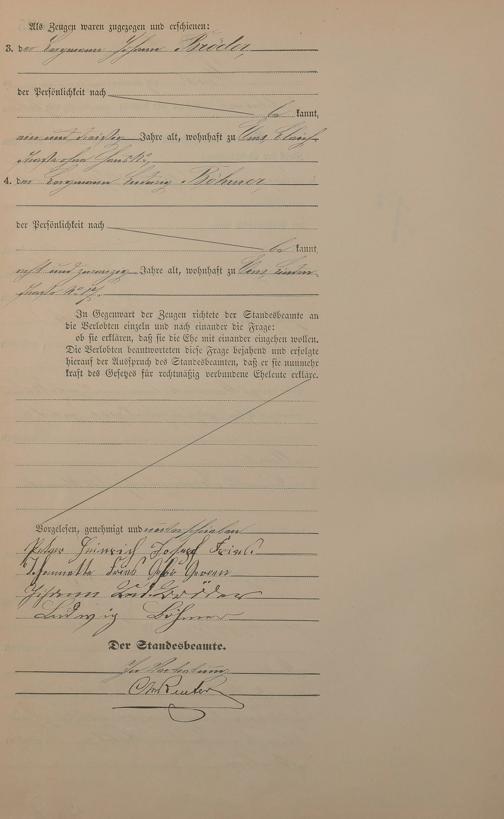 Als Zeugen waren zugezogen und erschienen:
3. der Bergmann Johann Bröder,
der Persönlichkeit nach
be kannt,
ein und dreißig Jahre alt, wohnhaft zu
4. der Bergmann Ludwig Böhmer,
der Persönlichkeit nach
be kannt,
acht und zwanzig Jahre alt, wohnhaft zu
In Gegenwart der Zeugen richtete der Standesbeamte an
die Verlobten einzeln und nach einander die Frage:
ob sie erklären, daß sie die Ehe mit einander eingehen wollen.
Die Verlobten beantworteten diese Frage bejahend und erfolgte
hierauf der Ausspruch des Standesbeamten, daß er sie nunmehr
kraft des Gesetzes für rechtmäßig verbundene Eheleute erkläre.
Vorgelesen, genehmigt und unterschrieben
Heinrich Joseph Fries
Fries Geb.
Johann Bröder
Ludwig Böhmer
Der Standesbeamte.
In Vertretung